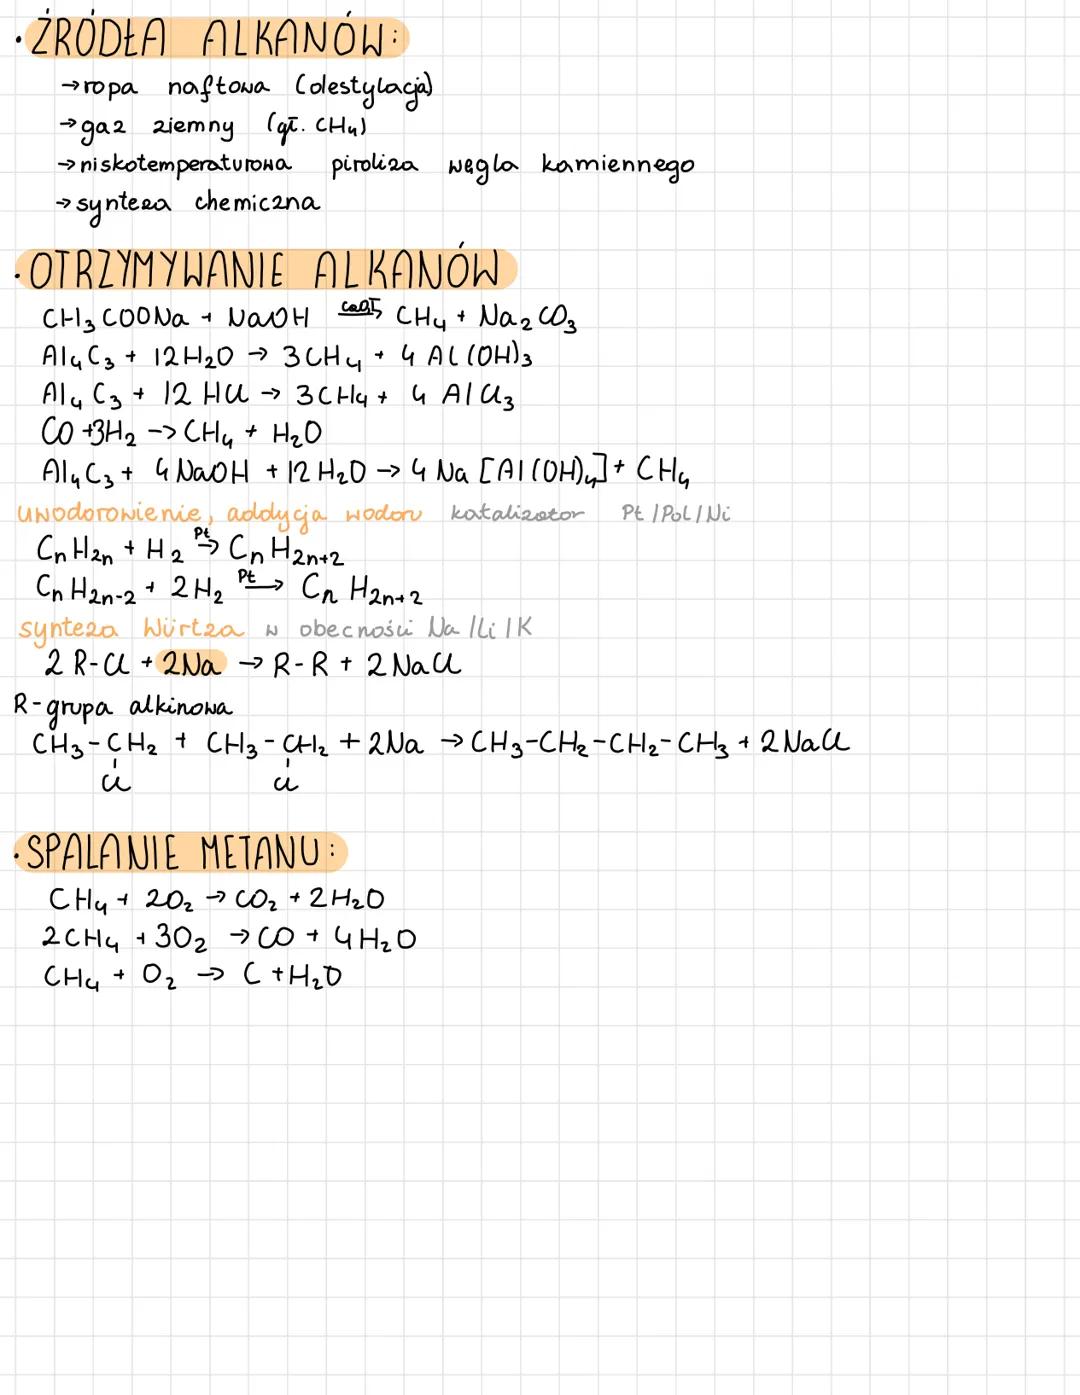 ·ŹRÓDŁA ALKANÓW:
→ropa naftowa (destylacja)
→gaz ziemny (gł. CH₄)
→niskotemperaturowa piroliza węgla kamiennego
→synteza chemiczna
·OTRZYMYWANIE ALKANÓW
CH₃COONa + NaOH CaO,T→ CH₄ + Na₂CO₃
Al₄C₃ + 12H₂O → 3CH₄ + 4 Al(OH)₃
Al₄C₃ + 12 HCl → 3CH₄ + 4 AlCl₃
CO +3H₂ → CH₄ + H₂O
Al₄C₃ + 4 NaOH + 12 H₂O → 4 Na [Al(OH)₄] + CH₄
uwodorowienie, addycja wodoru katalizator Pt /Pd / Ni
CₙH₂ₙ + H₂ Pt→ CₙH₂ₙ₊₂
CₙH₂ₙ₋₂ + 2H₂ Pt→ CₙH₂ₙ₊₂
synteza Würtza w obecności Na /Li /K
2 R-Cl + 2Na → R-R + 2NaCl
R-grupa alkinowa
CH₃-CH₂ + CH₃-CH₂ + 2Na → CH₃-CH₂-CH₂-CH₃ + 2NaCl
Cl Cl
·SPALANIE METANU:
CH₄ + 2O₂ → CO₂ + 2H₂O
2CH₄ + 3O₂ → CO + 4H₂O
CH₄ + O₂ → C + H₂O